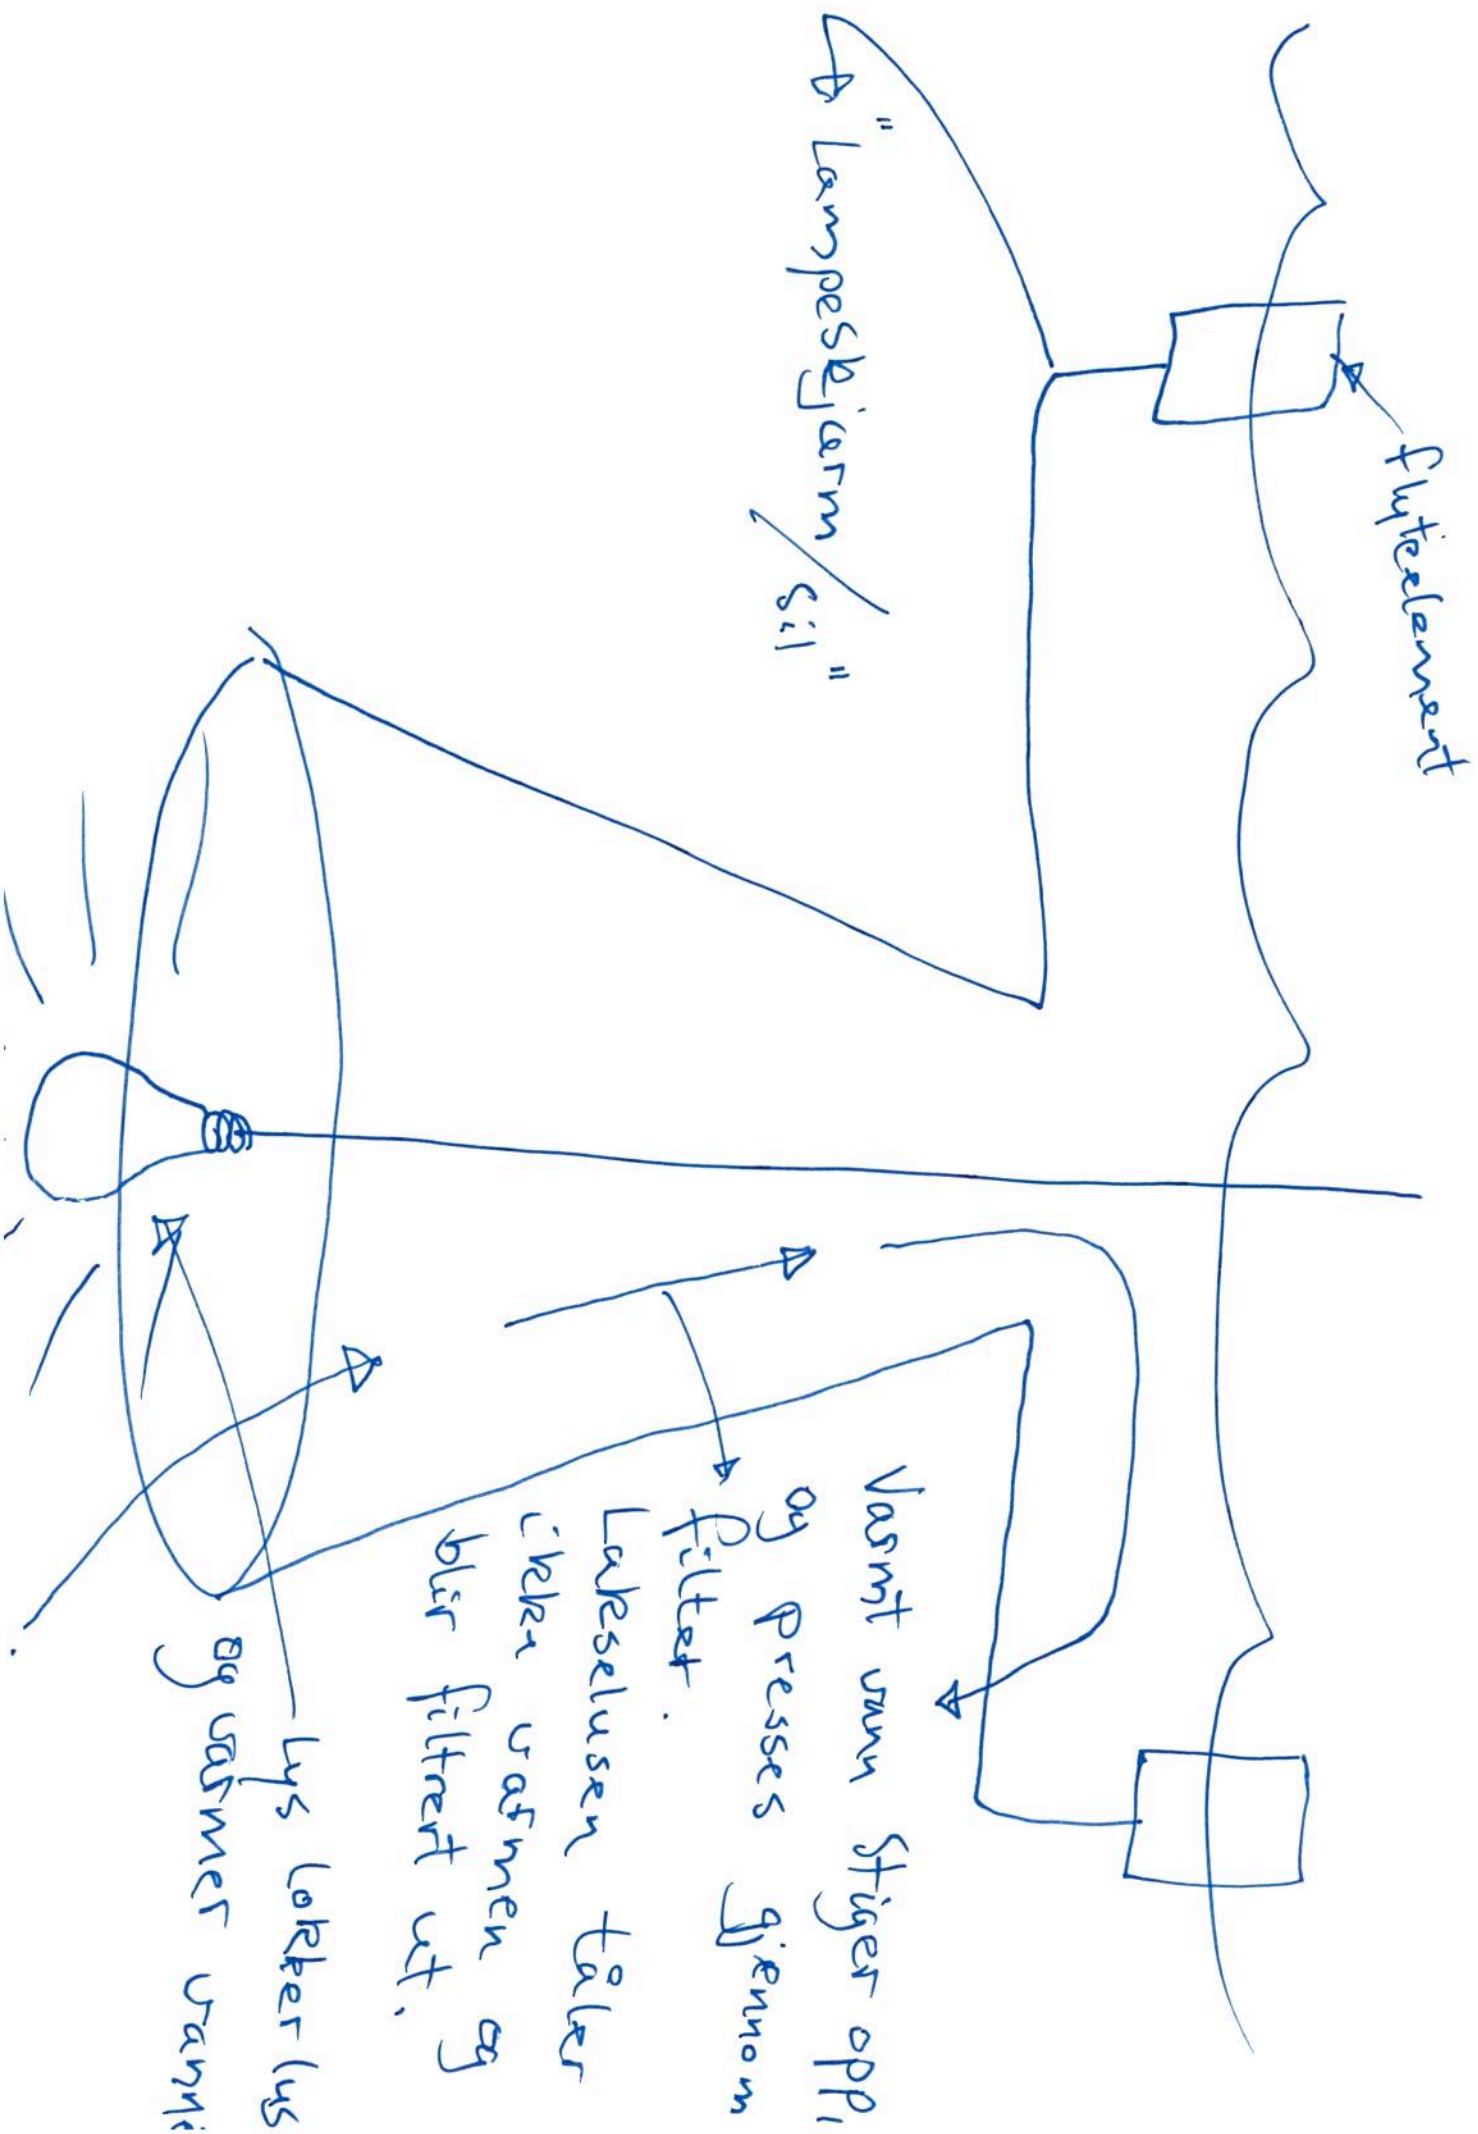 flyteelement
"Lampeskjerm / sil"
Varmt vann stiger opp,
og presses gjennom
filter.
Lakselusen tåler
ikke varmen og
blir filtrert ut.
Lys lokker lus
og varmer vann